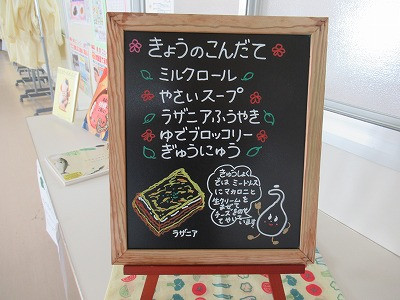 きょうのこんだて
ミルクロール
やさいスープ
ラザニアふうやき
ゆでブロッコリー
ぎゅうにゅう
きゅうしょく
では ミートソース
にマカロニと
生クリームを
まぜて
チーズをのせ
てやいています
ラザニア